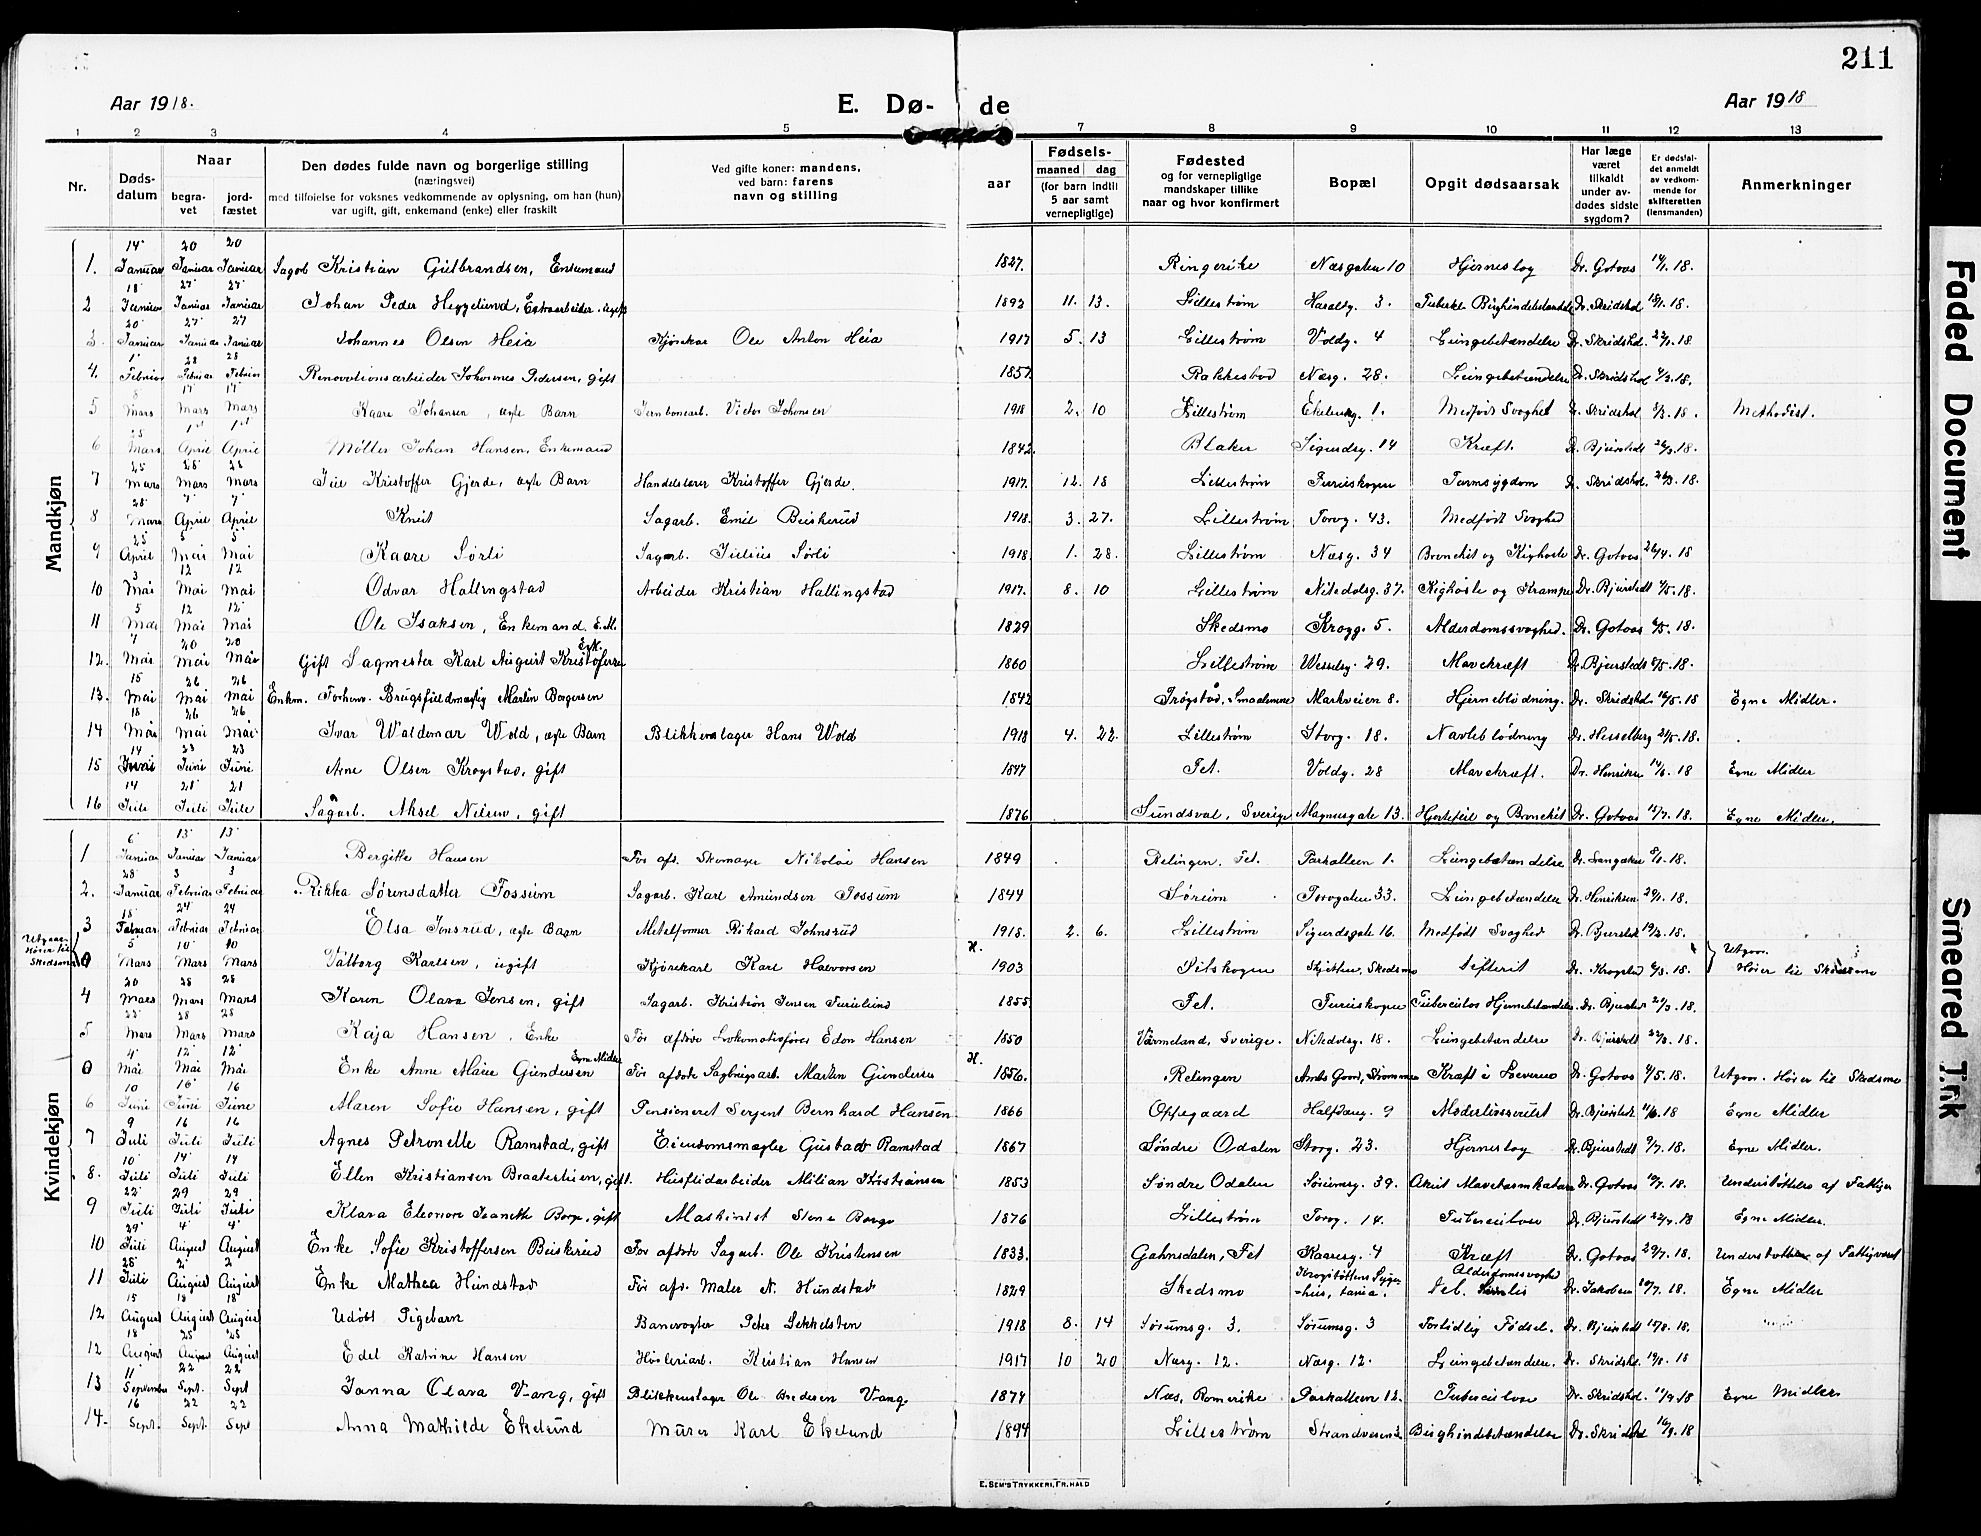 211
Aar 1918.
E. Dø- de
Aar 1918
1 2 3 4 5 7 8 9 10 11 12 13
Nr.
Døds-
datum
Naar
begra-
vet
jord-
fæstet
Den dødes fulde navn og borgerlige stilling
(næringsvei)
med tilføielse for voksnes vedkommende av oplysning, om han (hun)
var ugift, gift, enkemand (enke) eller fraskilt
Ved gifte koner: mandens,
ved barn: farens
navn og stilling
Fødsels-
aar
maaned dag
(for barn indtil
5 aar samt
vernepligtige)
Fødested
og for vernepligtige
mandskaper tillike
naar og hvor konfirmert
Bopæl
Opgit dødsaarsak
Har læge
været
tilkaldt
under av-
dødes sidste
sygdom?
Er dødsfal-
det anmeldt
av vedkom-
mende for
skifteretten
(lensmanden)
Anmerkninger
Mandkjøn
14 20 20
1. Januar Januar Januar Sagarb Kristian Gulbrandsen, Enkemand 1827. Ringerike Næsgaten 10 Hjerneslag Dr. Gotaas 14/1.18.
18 27 27
2 Januar Januar Januar Johan Peder Heggelund, Extraarbeider, ugift 1893 11. 13. Lillestrøm Haraldg. 3. Dr. Skridshol 18/1.18.
20 27 27
3. Januar Januar Januar Johannes Olsen Heia Kjørekar Ole Anton Heia 1917 5. 13 Lillestrøm Voldg. 4 Lungebetændelse Dr. Skridshol 22/1.18
1 28 28
4. Februar Februar Februar Renovationsarbeider Johannes Pedersen, gift 1857 Rakkestad Næsg. 28. Lungebetændelse Dr. Skridshol 18.
8 17 17
5 Mars Mars Mars Kaare Johansen, ægte Barn Jernbanearb. Victor Johansen 1918 2. 10 Lillestrøm 1. Medfødt Svaghet Dr. Skridshol 18. Methodist.
25 1st 1st
6 Mars April April Møller Johan Hansen, Enkemand 1842. Blaker Sigurdsg. 14 Kræft Dr. Bjurstedt 26/3.18.
25 28 28
7 Mars Mars Mars Kristoffer Gjerde, ægte Barn Handelslærer Kristoffer Gjerde. 1917. 12. 18 Lillestrøm Furuskogen Tarmsygdom Dr. Skridshol. 26/3.18.
28 7 7
8 Mars April April Knut Sagarb. Emil Buskerud 1918. 3. 27. Lillestrøm Torvg. 43. Medfødt Svaghed
25 5 5
9 April Mai Mai Kaare Sørli Sagarb. Julius Sørli 1918. 1. 28. Lillestrøm Næsg. 34 Bronchit og Kighoste Dr. Gotaas 26/4.18
3 12 12
10 Mai Mai Mai Odvar Hallingstad Arbeider Kristian Hallingstad 1917. 8. 10 Lillestrøm Nitedalsg. 37. Kighoste og Krampe Dr. Bjurstedt /5.18.
5 12 12
11 Mai Mai Mai Ole Isaksen, Enkemand. E.M. 1829 Skedsmo Krogg. 5. Alderdomssvaghed. Dr. Gotaas 6/5.18.
7 20 20
12. Mai Mai Mai Gift Sagmester Karl August Kristofersen 1860 Lillestrøm Wesselsg. 29. Mavekræft Dr. Bjurstedt 8/5.18.
15 26 26
13. Mai Mai Mai Enkm. Forhenv. Brugsfuldmægtig Martin Borgersen 1842 Trøgstad, Smaalenene Markveien 8. Hjerneblødning. Dr. Skridshol. 16/5.18 Egne Midler.
18 26 26
14 Mai Mai Mai Ivar Waldemar Wold, ægte Barn Blikkenslager Hans Wold 1918 4. 22. Lillestrøm Storg. 18. Navleblødning Dr. Hesselberg 21/5.18.
14 23 23
15 Juni Juni Juni Arne Olsen Krogstad, gift 1847 Fet. Voldg. 28 Mavekræft. Dr. Henriksen 14/6.18 Egne Midler
14 21 21
16 Juli Juli Juli Sagarb. Aksel Nilsen, gift 1876 Sundsval, Sverige Magnusgate 13. Hjertefeil og Bronchit Dr. Gotaas 15/7.18. Egne Midler.
Kvindekjøn
6 13 13
1 Januar Januar Januar Bergitte Hansen For afd. Skomager Nikolai Hansen 1849 Rælingen. Fet. Parkalleen 1. Lungebetændelse Dr. 8/1.18.
28 3 3
2. Januar Februar Februar Rikka Sørensdatter Fossum Sagarb. Karl Amundsen Fossum 1844 Sørum Torvgaten 33. Lungebetændelse Dr. Henriksen 29/1.18.
18 24 24
3 Februar Februar Februar Elsa Jonsrud, ægte Barn Metalformer Rikard Johnsrud 1918. 2. 6. Lillestrøm Sigurdsgate 16. Medfødt Svaghed Dr. Bjurstedt 19/2.18.
Utgaar.
Hører til
Skedsmo
5 10 10
0 Mars Mars Mars Valborg Karlsen, ugift Kjørekarl Karl Halvorsen H. 1903 Pilskogen Skjetten, Skedsmo Difterit Dr. Krogstad 6/3.18. Utgaar. Hører til Skedsmo
20 28 28
4 Mars Mars Mars Karen Olava Jensen, gift Sagarb. Kristian Jensen Furulund 1855. Fet. Furuskogen Tuberculos Hjernebetændelse. Dr. Bjurstedt 21/3.18.
22 28 28
5 Mars Mars Mars Kaja Hansen, Enke For afdøde Lokomotivfører Edon Hansen 1850 Värmeland, Sverige. Nitedalsg. 18. Lungebetændelse Dr. Bjurstedt 22/3.18.
4 12 12
0 Mai Mai Mai Enke Anne Marie Gundersen Egne Midler For afdøde Sagbrugsarb. Martin Gundersen H. 1856. Rælingen Amts Gaard, Strømmen Kræft i Leveren Dr. Gotaas /5.18. Utgaar. Hører til Skedsmo
10 16 16
6 Juni Juni Juni Maren Sofie Hansen, gift Pensioneret Sergent Bernhard Hansen 1866 Oppegaard Halfdang. 9 Dr. Bjurstedt 11/6.18 Egne Midler
9 16 16
7 Juli Juli Juli Agnes Petronelle Ramstad, gift Eiendomsmægler Gustav Ramstad 1867 Søndre Odalen Storg. 23. Hjerneslag Dr. Bjurstedt 9/7.18. Egne Midler.
10 14 14
8. Juli Juli Juli Ellen Kristiansen Braaterlien, gift. Husflidarbeider Milian Kristiansen 1853 Søndre Odalen Sørumsg. 39. Akut Mavetarmkatarr Dr. Gotaas 10/7.18. Understøttelse af Fattigv
22 29 29
9 Juli Juli Juli Klara Eleonore Jeanette Borge, gift Maskinist Stene Borge 1876 Lillestrøm Torvg. 14. Tuberculose Dr. Bjurstedt 22/7.18 Egne Midler.
29 4 4
10 Juli August August Enke Sofie Kristoffersen Buskerud For afdøde Sagarb. Ole Kristensen 1833. Gahnsdalen, Fet Kaaresg. 4 Kræft Dr. Gotaas 29/7.18. Understøttelse af Fattigvæsen
28 2 2
11 Juli August August Enke Mathea Hundstad For afd. Maler N. Hundstad 1829 Skedsmo Krogstøttens Syge-
hus, Kania. Alderdomssvaghed
Deb. Senilis Dr. Jakobsen 18. Egne Midler
15 18 18
12 August August August Udøbt Pigebarn Banevogter Peter Sekkelsten 1918 8. 14 Sørumsg. 3. Sørumsg. 3 For tidlig Fødsel. Dr. Bjurstedt 15/8.18.
18 25 25
12 August August August Edel Katrine Hansen Høvleriarb. Kristian Hansen 1917 10 20 Næsg. 12. Næsg. 12. Lungebetændelse. Dr. Skridshol. 19/8.18
11 22 22
13 September Sept. Sept Janna Clara Vang, gift Blikkenslager Ole Andresen Vang 1874 Næs, Romerike Parkalleen 12. Tuberculose Dr. Skridshol 11/9.18 Egne Midler
16 22 22
14. Sept. Sept. Sept Anna Mathilde Ekelund Murer Karl Ekelund 1894 Lillestrøm Strandveien 2 Bughindebetændelse Dr. Skridshol 16/9.18
E. SEM'S TRYKKERI, FR.HALD
Faded Document
Smeared Ink